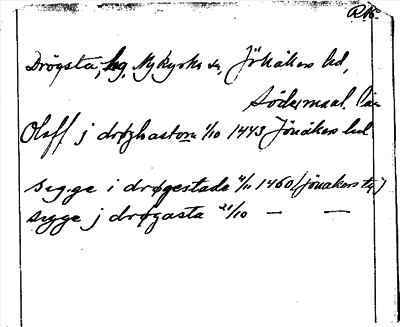 Drögsta, hg, Nykyrka sn, Jönåkers hd,
Södermanl. län
Oleff j drøghastom 1/10 1443 Jönåkers hd
Sigge i drøgestade 4/11 1460 (jönakers
sigge j drøgasta 21/10 — —